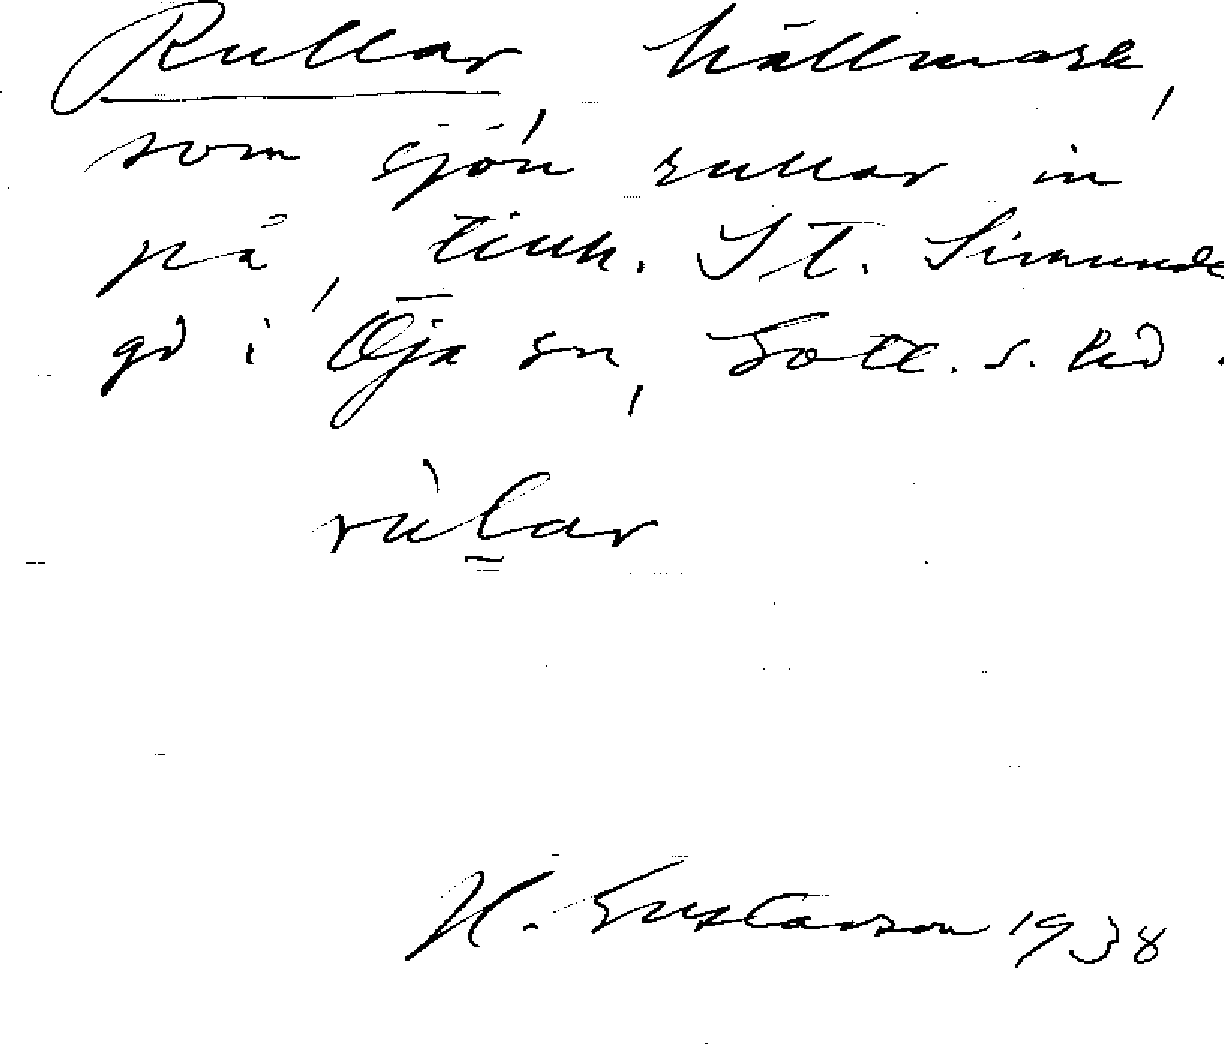 Rullar hällmark,
som sjön rullar in
på, tillh. St. Simunde
gd i Öja sn, Gotl. s. hd.
rùlar
H. Gustavson 1938